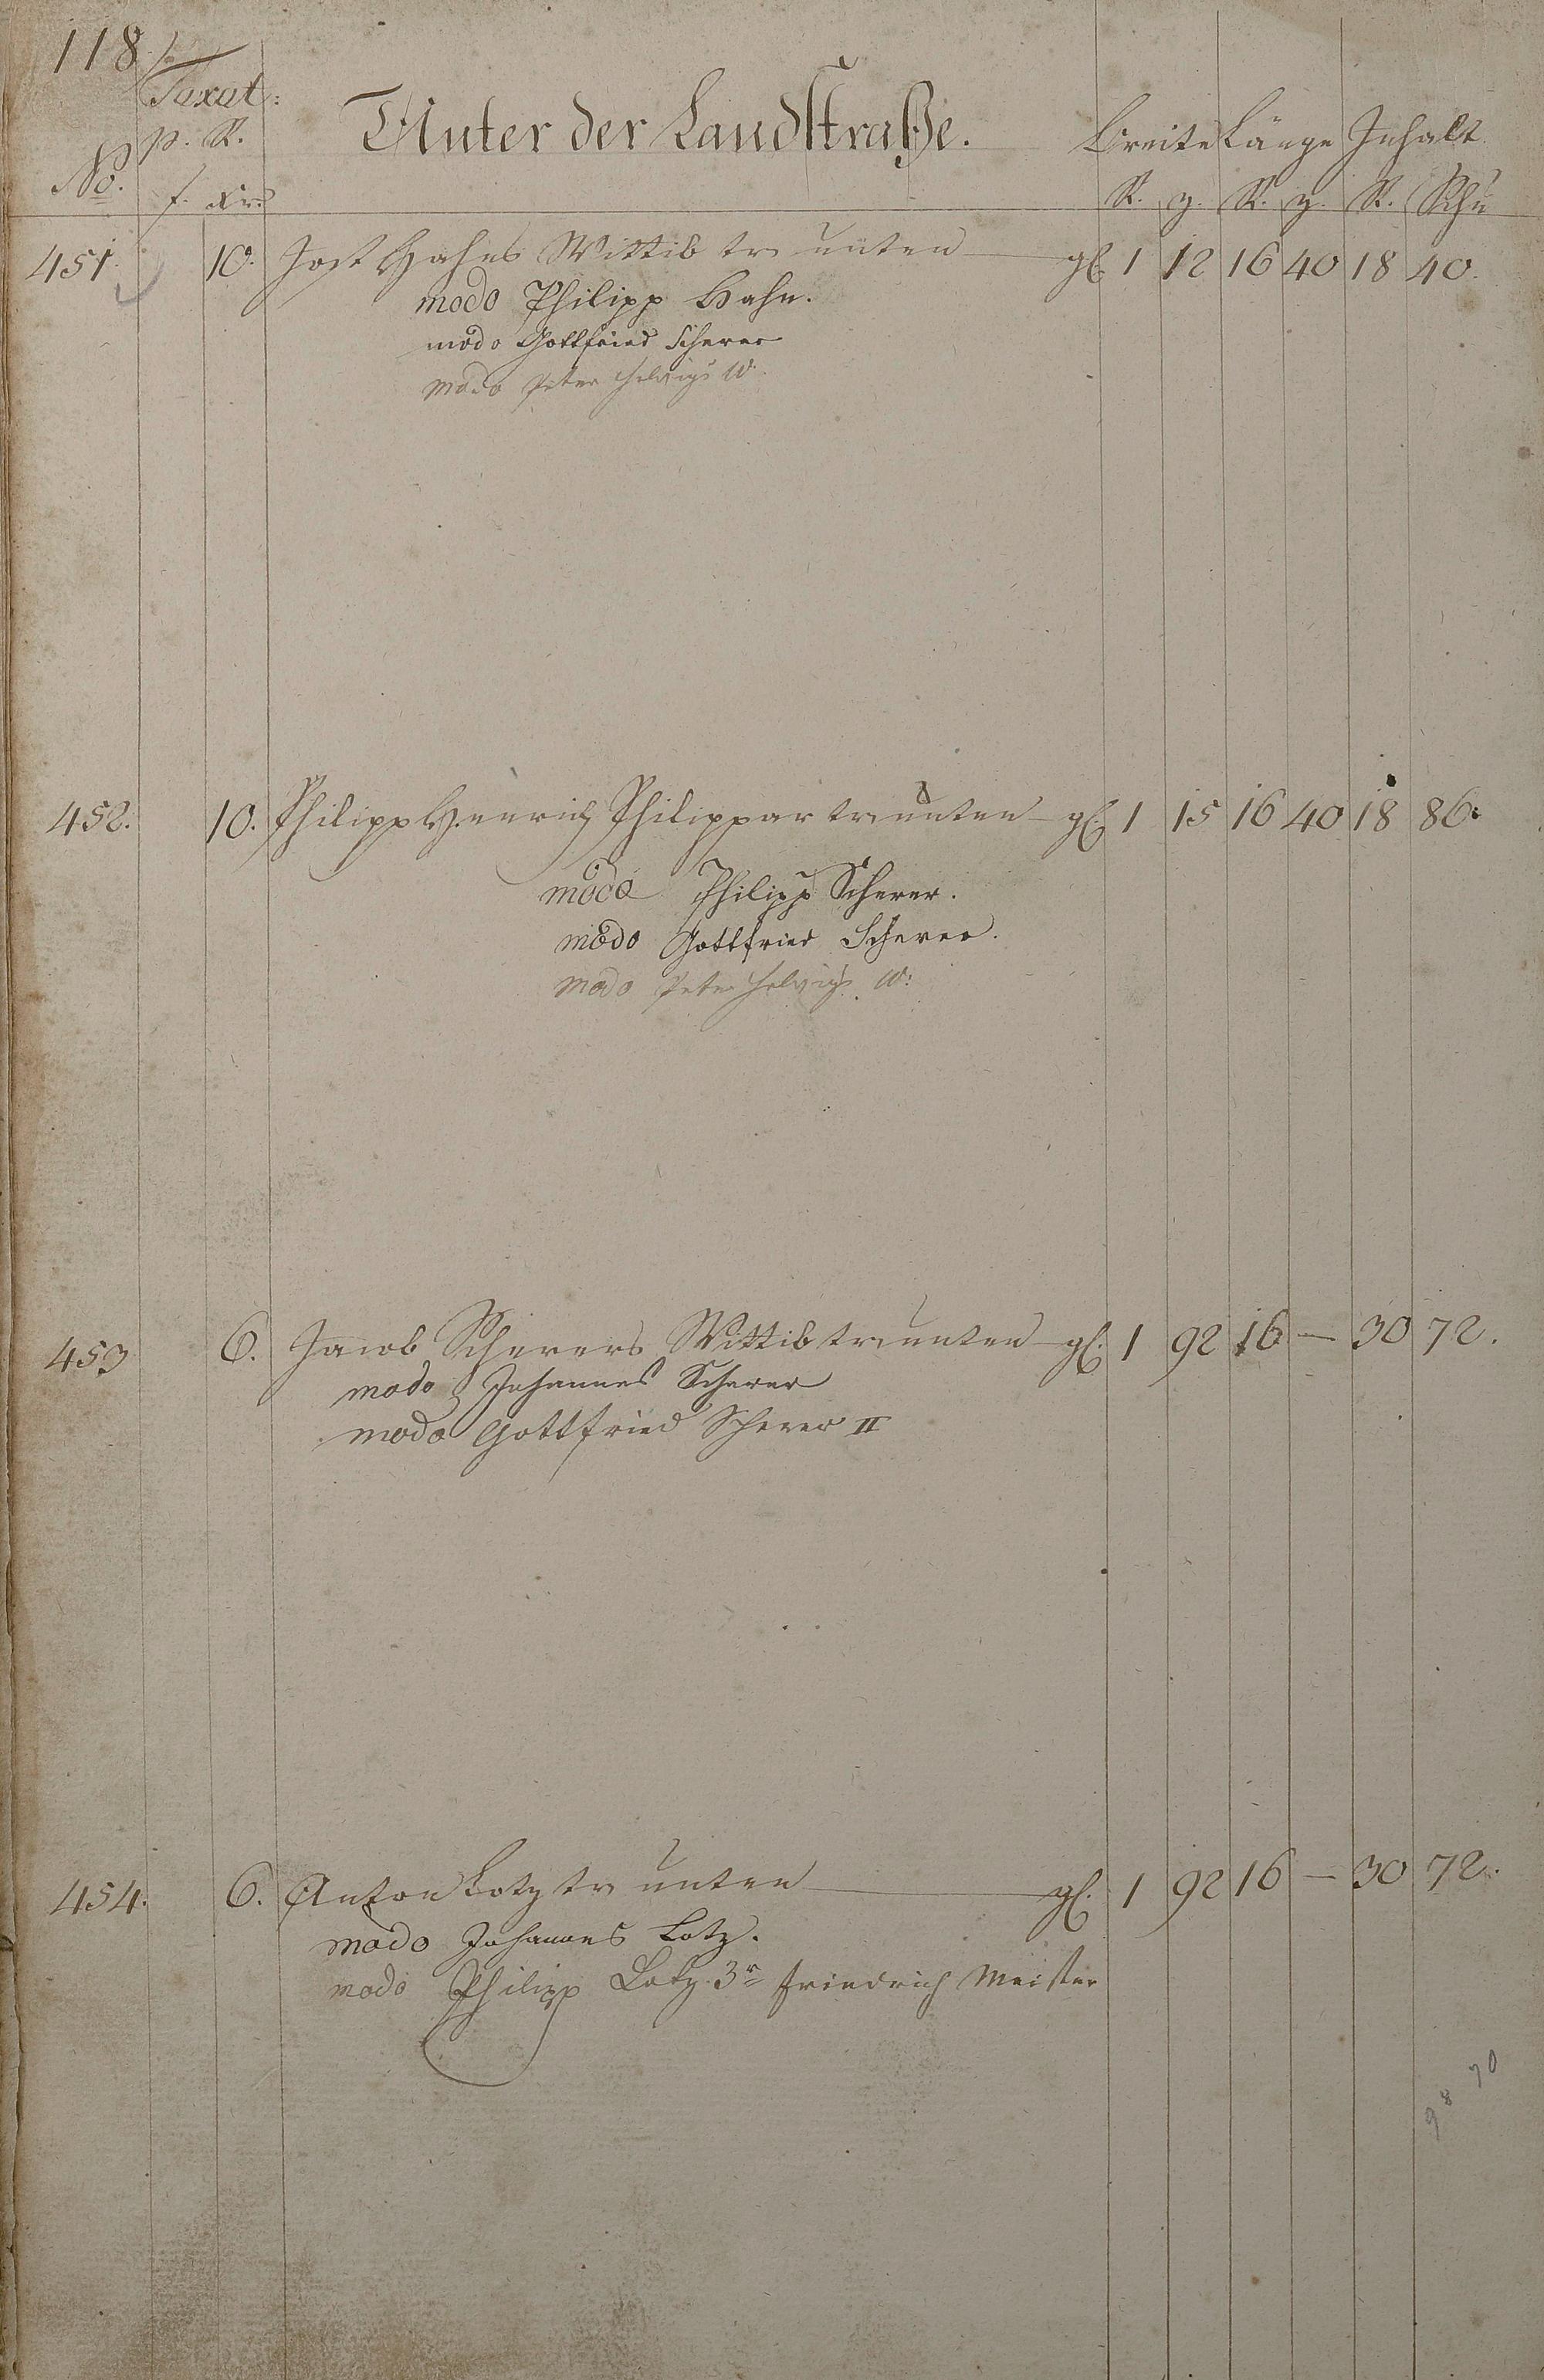 118.
Taxat:
p. R.
Unter der Landstraße.
Breite Länge Inhalt
No. f. Xr. R. z. R. z. R. Schu
451. 10. Jost Hahns Wittib tr unten gl. 1 12 16 40 18 40.
modo Philipp Hahn.
modo Gottfried Scherer
modo Peter Helwigs W.
452. 10. Philipp Henrich Philippar tr unten gl. 1 15 16 40 18 86.
modo Philipp Scherer.
modo Gottfried Scherer.
modo Peter Helwigs W:
453 6. Jacob Scherers Wittib tr unten gl. 1 92 16 — 30 72.
modo Johannes Scherer
modo Gottfried Scherer II
454. 6. Anton Lotz tr unten gl. 1 92 16 — 30 72.
modo Johannes Lotz.
modo Philipp Lotz 3r Friedrich Meister
98 70